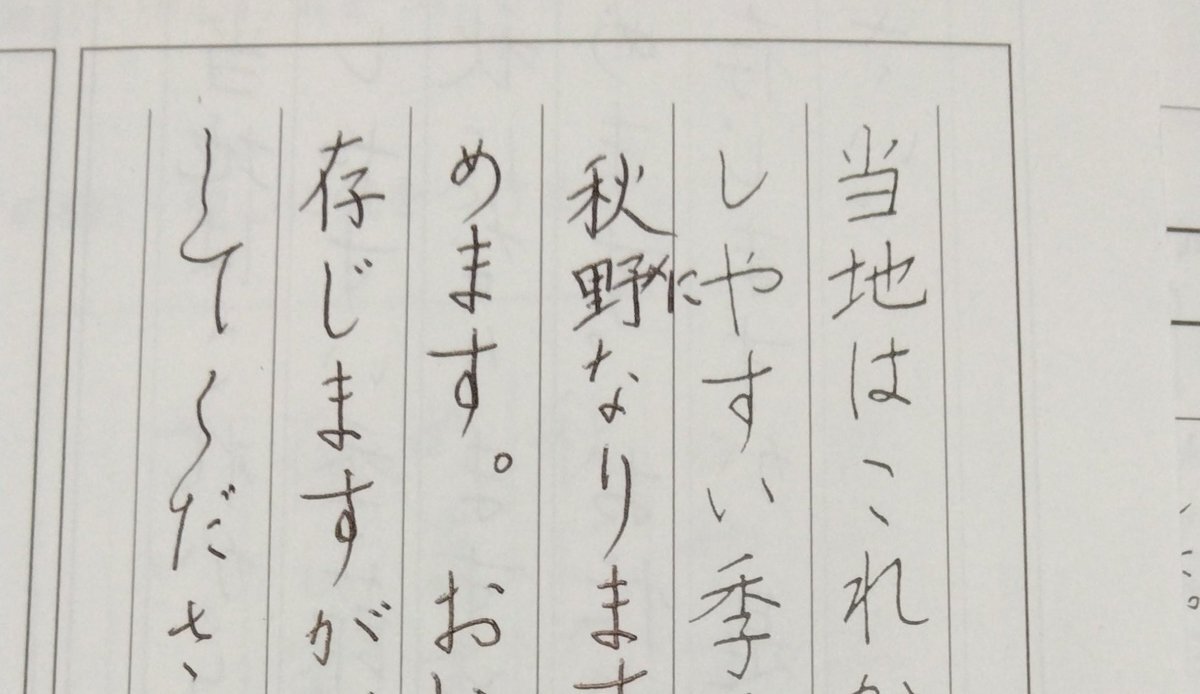 当地はこれか
しやすい季
秋野になります
めます。 おい
存じますが、
してくださ